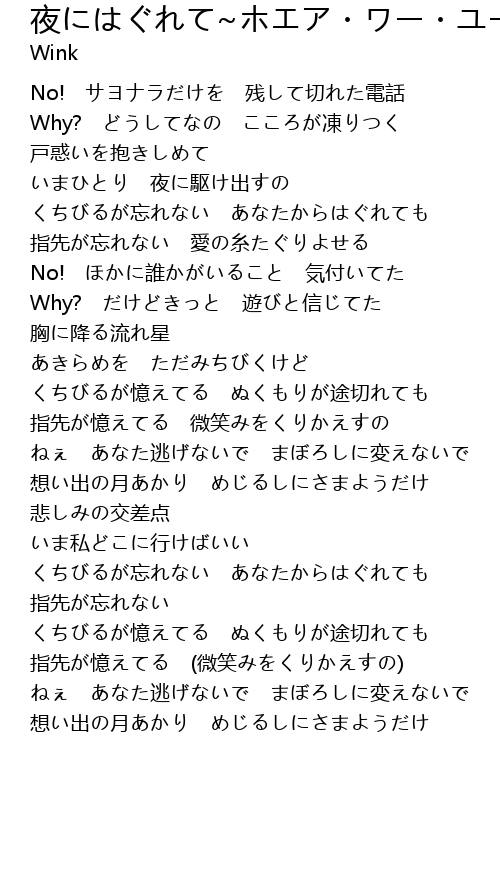 夜にはぐれて~ホエア・ワー・ユー
Wink
No!　サヨナラだけを　残して切れた電話
Why?　どうしてなの　こころが凍りつく
戸惑いを抱きしめて
いまひとり　夜に駆け出すの
くちびるが忘れない　あなたからはぐれても
指先が忘れない　愛の糸たぐりよせる
No!　ほかに誰かがいること　気付いてた
Why?　だけどきっと　遊びと信じてた
胸に降る流れ星
あきらめを　ただみちびくけど
くちびるが憶えてる　ぬくもりが途切れても
指先が憶えてる　微笑みをくりかえすの
ねぇ　あなた逃げないで　まぼろしに変えないで
想い出の月あかり　めじるしにさまようだけ
悲しみの交差点
いま私どこに行けばいい
くちびるが忘れない　あなたからはぐれても
指先が忘れない
くちびるが憶えてる　ぬくもりが途切れても
指先が憶えてる　(微笑みをくりかえすの)
ねぇ　あなた逃げないで　まぼろしに変えないで
想い出の月あかり　めじるしにさまようだけ